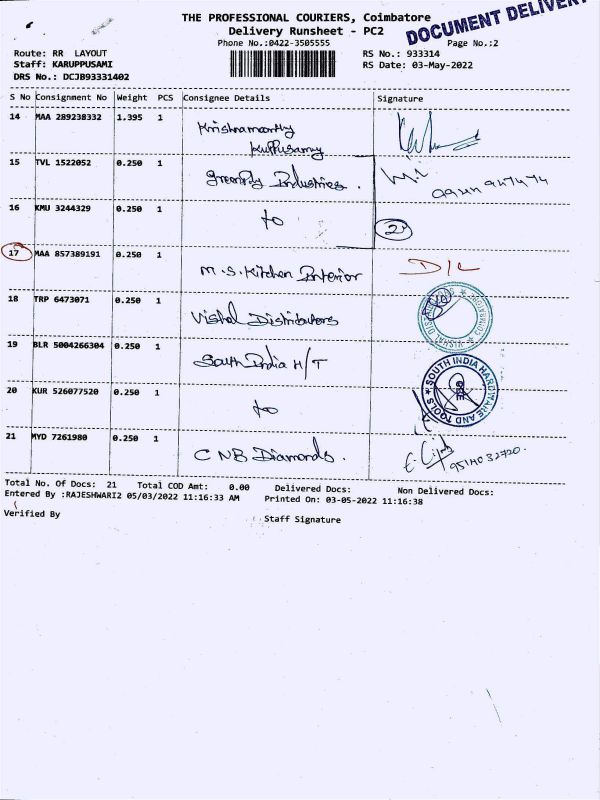 THE PROFESSIONAL COURIERS, Coimbatore
DOCUMENT DELIVERY
Delivery Runsheet - PC2
Phone No.:0422-3505555
Page No.:2
Route: RR LAYOUT
RS No.: 933314
Staff: KARUPPUSAMI
RS Date: 03-May-2022
DRS No.: DCJB93331402
S No Consignment No Weight PCS Consignee Details Signature
14 MAA 289238332 1.395 1 Krishnamoorthy
Kuppusamy
15 TVL 1522052 0.250 1 Greenply Industries.
16 KMU 3244329 0.250 1 to 2
17 MAA 857389191 0.250 1 M.S. Kitchen Interior D/L
18 TRP 6473071 0.250 1 Vishal Distributors
VISHAL
19 BLR 5004266304 0.250 1 South India H/T
SOUTH INDIA HARDWARE AND TOOLS
20 KUR 526077520 0.250 1 to
21 MYD 7261980 0.250 1 CNB Diamonds.
Total No. Of Docs: 21 Total COD Amt: 0.00 Delivered Docs: Non Delivered Docs:
Entered By :RAJESHWARI2 05/03/2022 11:16:33 AM Printed On: 03-05-2022 11:16:38
Verified By Staff Signature